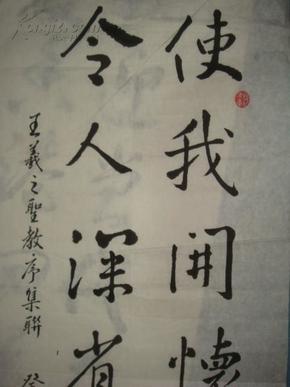 使我開懷
令人深省
王羲之聖教序集聯 癸